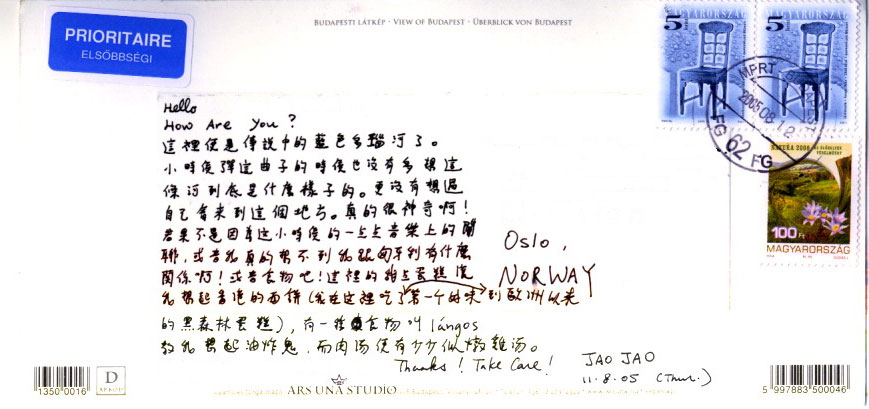 BUDAPESTI LÁTKÉP · VIEW OF BUDAPEST · ÜBERBLICK VON BUDAPEST
PRIORITAIRE
ELSŐBBSÉGI
5 MAGYARORSZÁG
5 MAGYARORSZÁG
MPRT
2005.08.12
FG 62 FG
NATURA 2000
100Ft
MAGYARORSZÁG
Hello
How Are You?
這裡便是傳說中的藍色多瑙河了。
小時侯彈這曲子的時侯也沒有多想這
條河到底是什麼樣子的。更沒有想過
自己會來到這個地方。真的很神奇啊!
若果不是因着這小時侯的一点点音樂上的關
聯,或者我真的想不到我跟匈牙利有什麼
關係啊!或者食物吧!這裡的甜点蛋糕
我想起香港的西餅(我在這裡吃了第一个好味到歐洲以來
的黑森林蛋糕),有一種食物叫 lángos
教我想起油炸鬼,而肉湯便有少少似燉雞湯。
Thanks! Take Care!
JAO JAO
11.8.05 (Thur.)
Oslo,
NORWAY
1350 0016
D
ARS UNA STUDIO
5 997883 500046